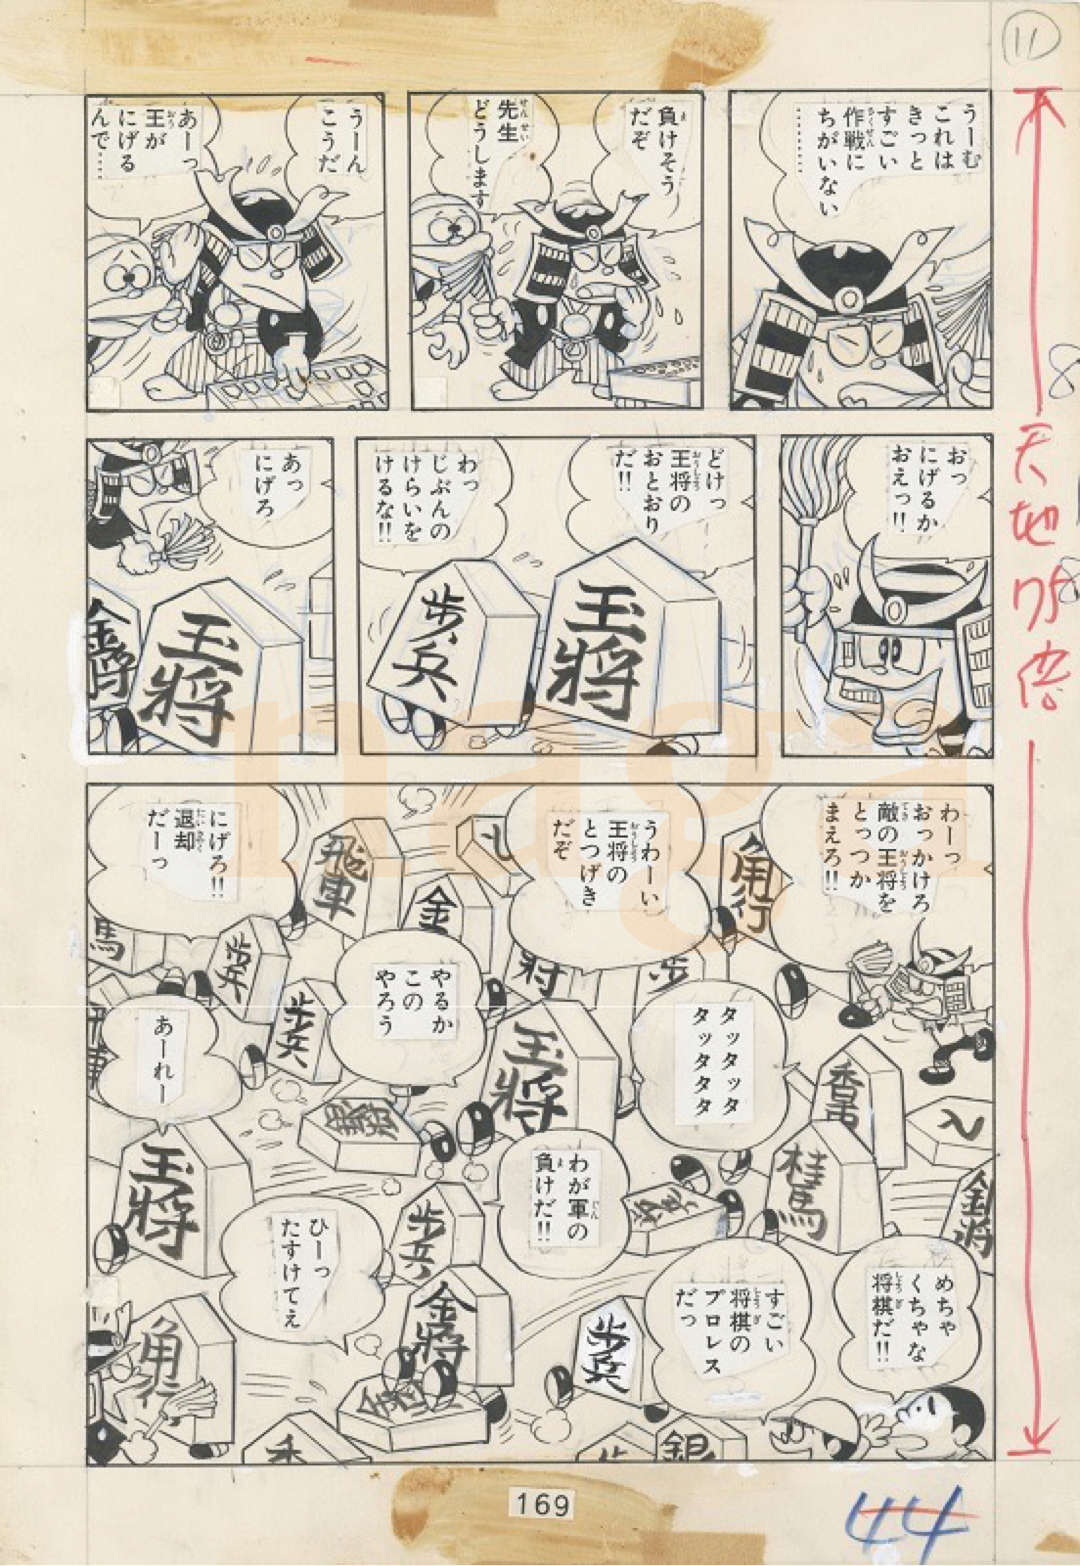 11
うーむ
これは
きっと
すごい
作戦に
ちがいない
…………
負けそう
だぞ
先生
どうします
うーん
こうだ
あーっ
王が
にげる
んで……
おっ
にげるか
おえっ!!
どけっ
王将の
おとおり
だ!!
わっ
じぶんの
けらいを
けるな!!
歩兵
王将
あっ
にげろ
金将
王将
わーっ
おっかけろ
敵の王将を
とっつか
まえろ!!
うわーい
王将の
とつげき
だぞ
にげろ!!
退却
だーっ
角行
飛車
金
馬
歩兵
将
歩
歩兵
やるか
この
やろう
あーれー
タッタッタ
タッタタタ
王将
香車
銀将
王将
桂馬
わが軍の
負けだ!!
歩兵
ひーっ
たすけてえ
金将
歩兵
角行
めちゃ
くちゃな
将棋だ!!
すごい
将棋の
プロレス
だっ
銀
香
169
44
天地
倍
naga